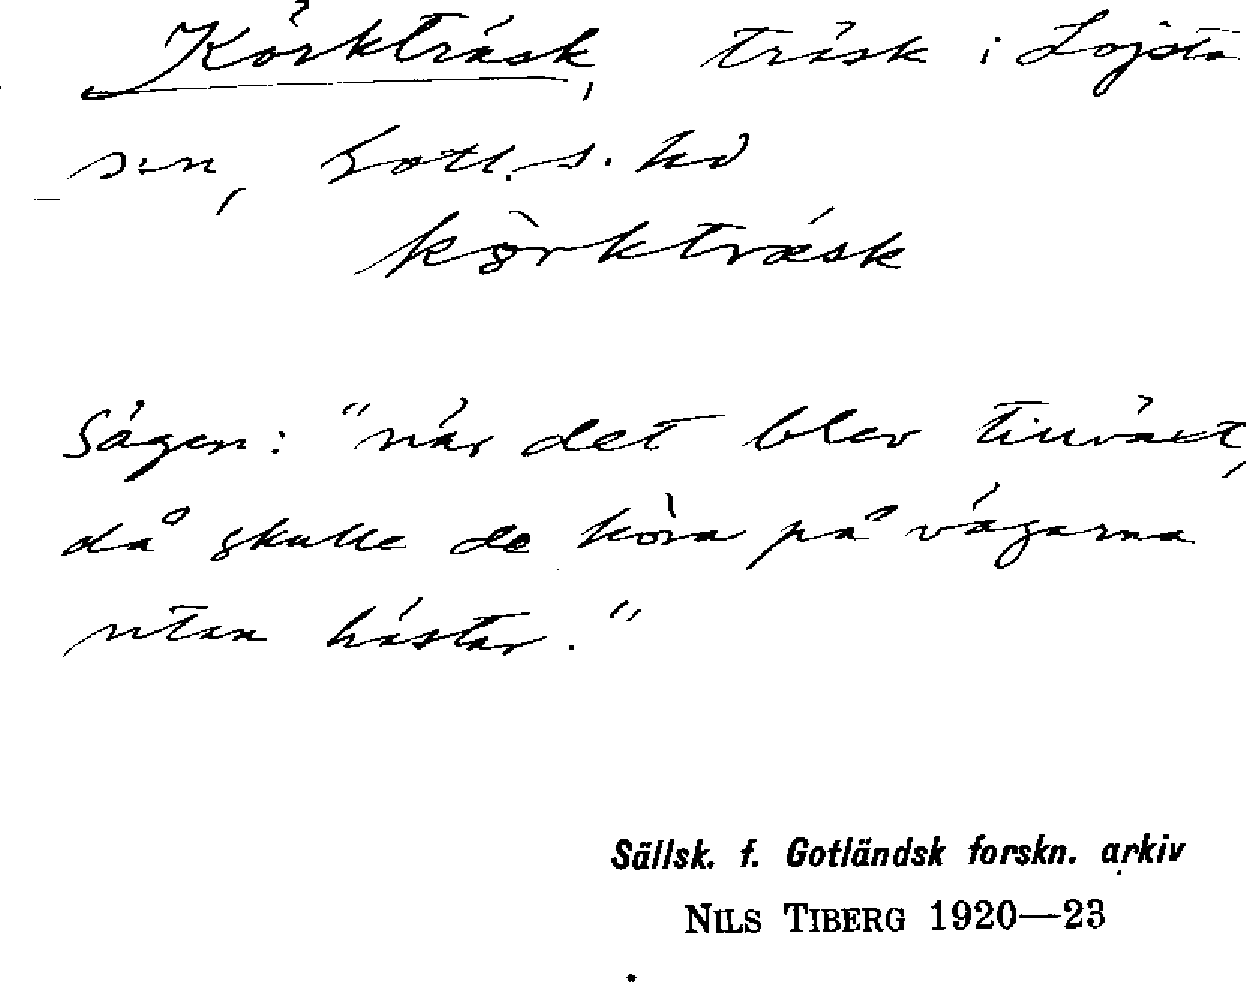 Körkträsk, träsk i Lojsta
s:n, Gotl. s. hd
körkträsk
Sägen: "när det blev tillväxt,
då skulle de köra på vägarna
utan hästar."
Sällsk. f. Gotländsk forskn. arkiv
NILS TIBERG 1920—23